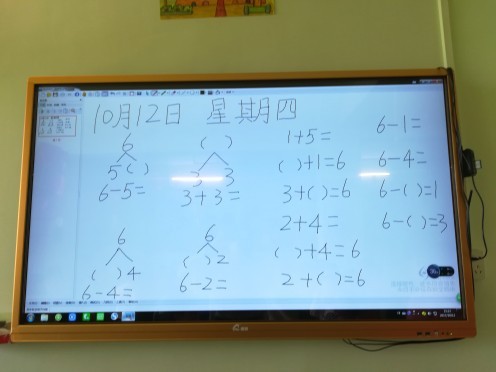 10月12日 星期四
6
5 ( )
6-5=
( )
3 3
3+3=
6
( ) 4
6-4=
6
( ) 2
6-2=
1+5=
( )+1=6
3+( )=6
2+4=
( )+4=6
2+( )=6
6-1=
6-4=
6-( )=1
6-( )=3